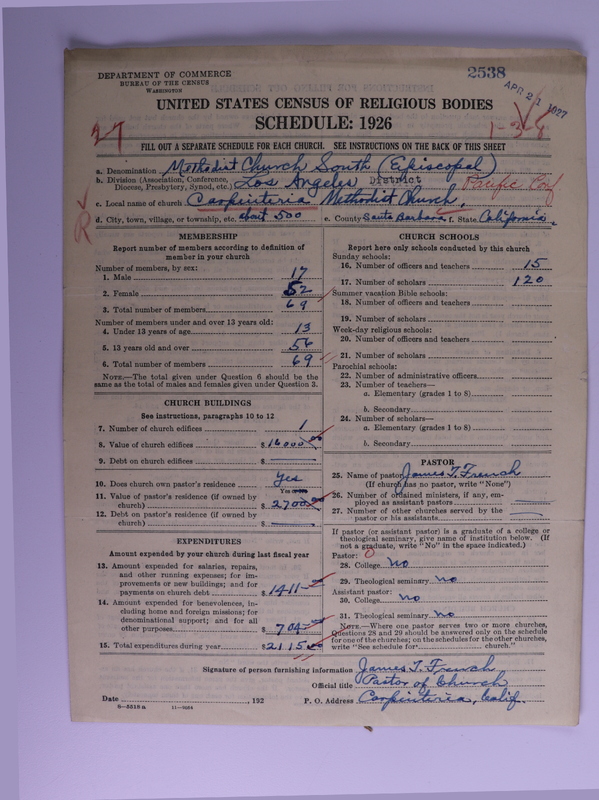 2538
DEPARTMENT OF COMMERCE
BUREAU OF THE CENSUS
WASHINGTON
APR 21 1927
UNITED STATES CENSUS OF RELIGIOUS BODIES
27
SCHEDULE: 1926
1-3-8
FILL OUT A SEPARATE SCHEDULE FOR EACH CHURCH. SEE INSTRUCTIONS ON THE BACK OF THIS SHEET
a. Denomination Methodist Church South (Episcopal)
b. Division (Association, Conference, Diocese, Presbytery, Synod, etc.) Los Angeles District Pacific Conf
c. Local name of church Carpinteria Methodist Church,
R
d. City, town, village, or township, etc. about 500 e. County Santa Barbara f. State California.
MEMBERSHIP
Report number of members according to definition of
member in your church
Number of members, by sex:
1. Male 17
2. Female 52
3. Total number of members 69
Number of members under and over 13 years old:
4. Under 13 years of age 13
5. 13 years old and over 56
6. Total number of members 69
NOTE.—The total given under Question 6 should be the
same as the total of males and females given under Question 3.
CHURCH BUILDINGS
See instructions, paragraphs 10 to 12
7. Number of church edifices 1
8. Value of church edifices $16000.00
9. Debt on church edifices $
10. Does church own pastor's residence Yes
Yes or no
11. Value of pastor's residence (if owned by
church) $2700.00
12. Debt on pastor's residence (if owned by
church) $
EXPENDITURES
Amount expended by your church during last fiscal year
13. Amount expended for salaries, repairs,
and other running expenses; for im-
provements or new buildings; and for
payments on church debt $1411
14. Amount expended for benevolences, in-
cluding home and foreign missions; for
denominational support; and for all
other purposes $704
15. Total expenditures during year $2115.00
CHURCH SCHOOLS
Report here only schools conducted by this church
Sunday schools:
16. Number of officers and teachers 15
17. Number of scholars 120
Summer vacation Bible schools:
18. Number of officers and teachers
19. Number of scholars
Week-day religious schools:
20. Number of officers and teachers
21. Number of scholars
Parochial schools:
22. Number of administrative officers
23. Number of teachers—
a. Elementary (grades 1 to 8)
b. Secondary
24. Number of scholars—
a. Elementary (grades 1 to 8)
b. Secondary
PASTOR
25. Name of pastor James T. French
(If church has no pastor, write "None")
26. Number of ordained ministers, if any, em-
ployed as assistant pastors
27. Number of other churches served by the
pastor or his assistants
If pastor (or assistant pastor) is a graduate of a college or
theological seminary, give name of institution below. (If
not a graduate, write "No" in the space indicated.)
Pastor: 0
28. College no
29. Theological seminary no
Assistant pastor:
30. College no
31. Theological seminary no
NOTE.—Where one pastor serves two or more churches,
Questions 28 and 29 should be answered only on the schedule
for one of the churches; on the schedules for the other churches,
write "See schedule for church."
Signature of person furnishing information James T. French
Official title Pastor of Church
Date , 192 P. O. Address Carpinteria, Calif.